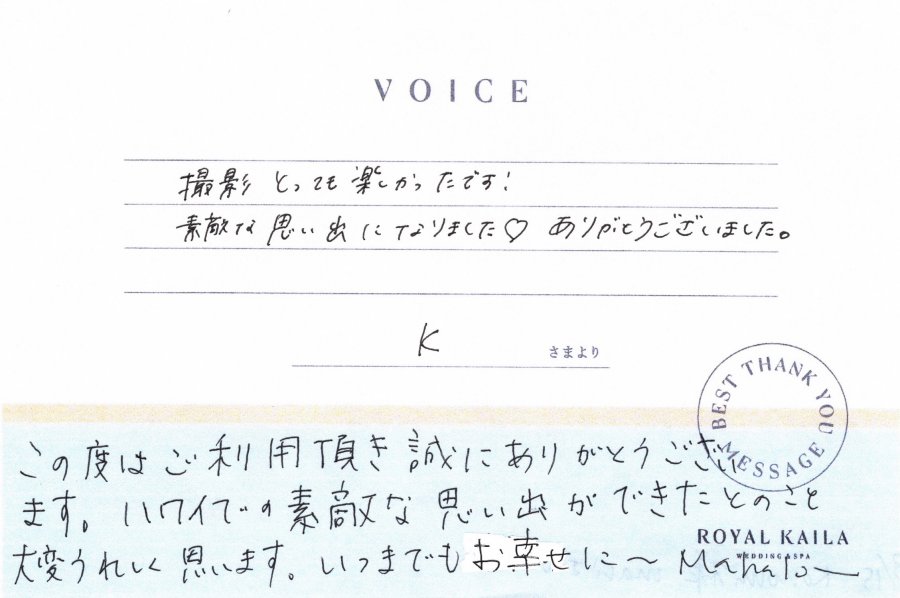 VOICE
撮影 とっても楽しかったです!
素敵な思い出になりました♡ ありがとうございました。
K さまより
BEST THANK YOU MESSAGE
この度はご利用頂き誠にありがとうござい
ます。ハワイでの素敵な思い出ができたとのこと
大変うれしく思います。いつまでもお幸せに〜 Mahalo
ROYAL KAILA
WEDDING & SPA